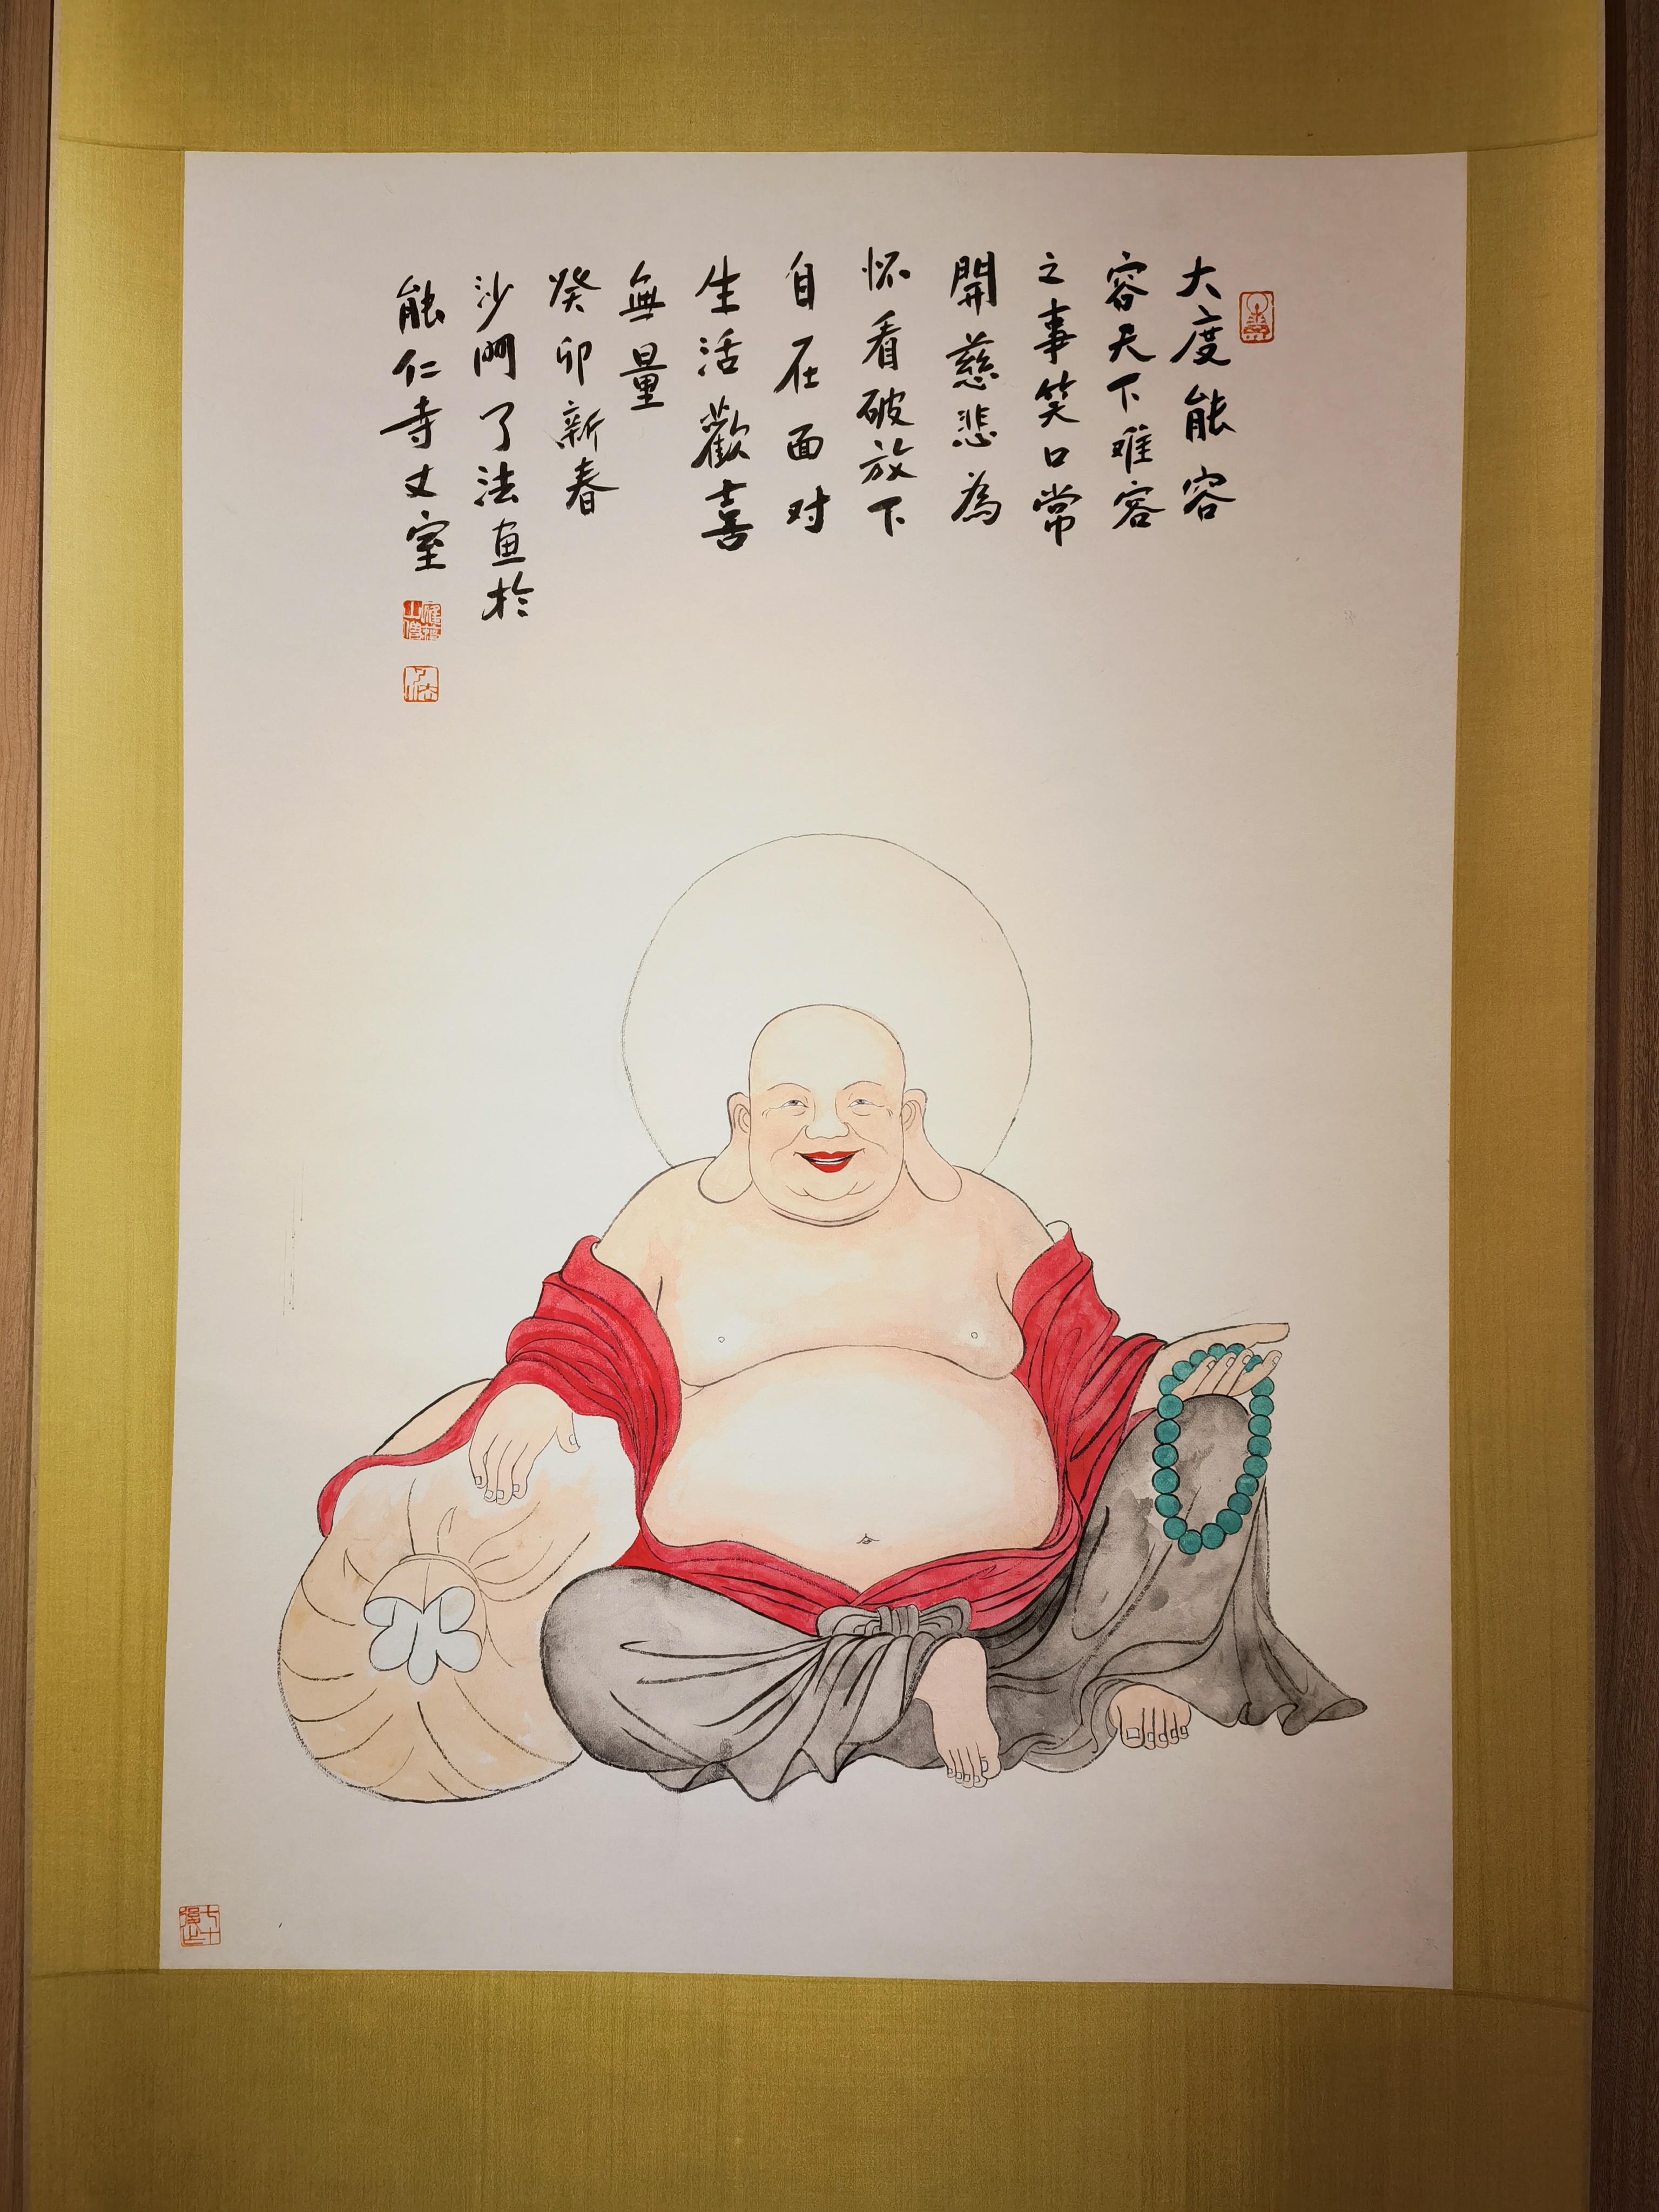 大度能容
容天下难容
之事笑口常
開慈悲為
怀看破放下
自在面对
生活歡喜
無量
癸卯新春
沙門了法画於
能仁寺丈室
了法
七十